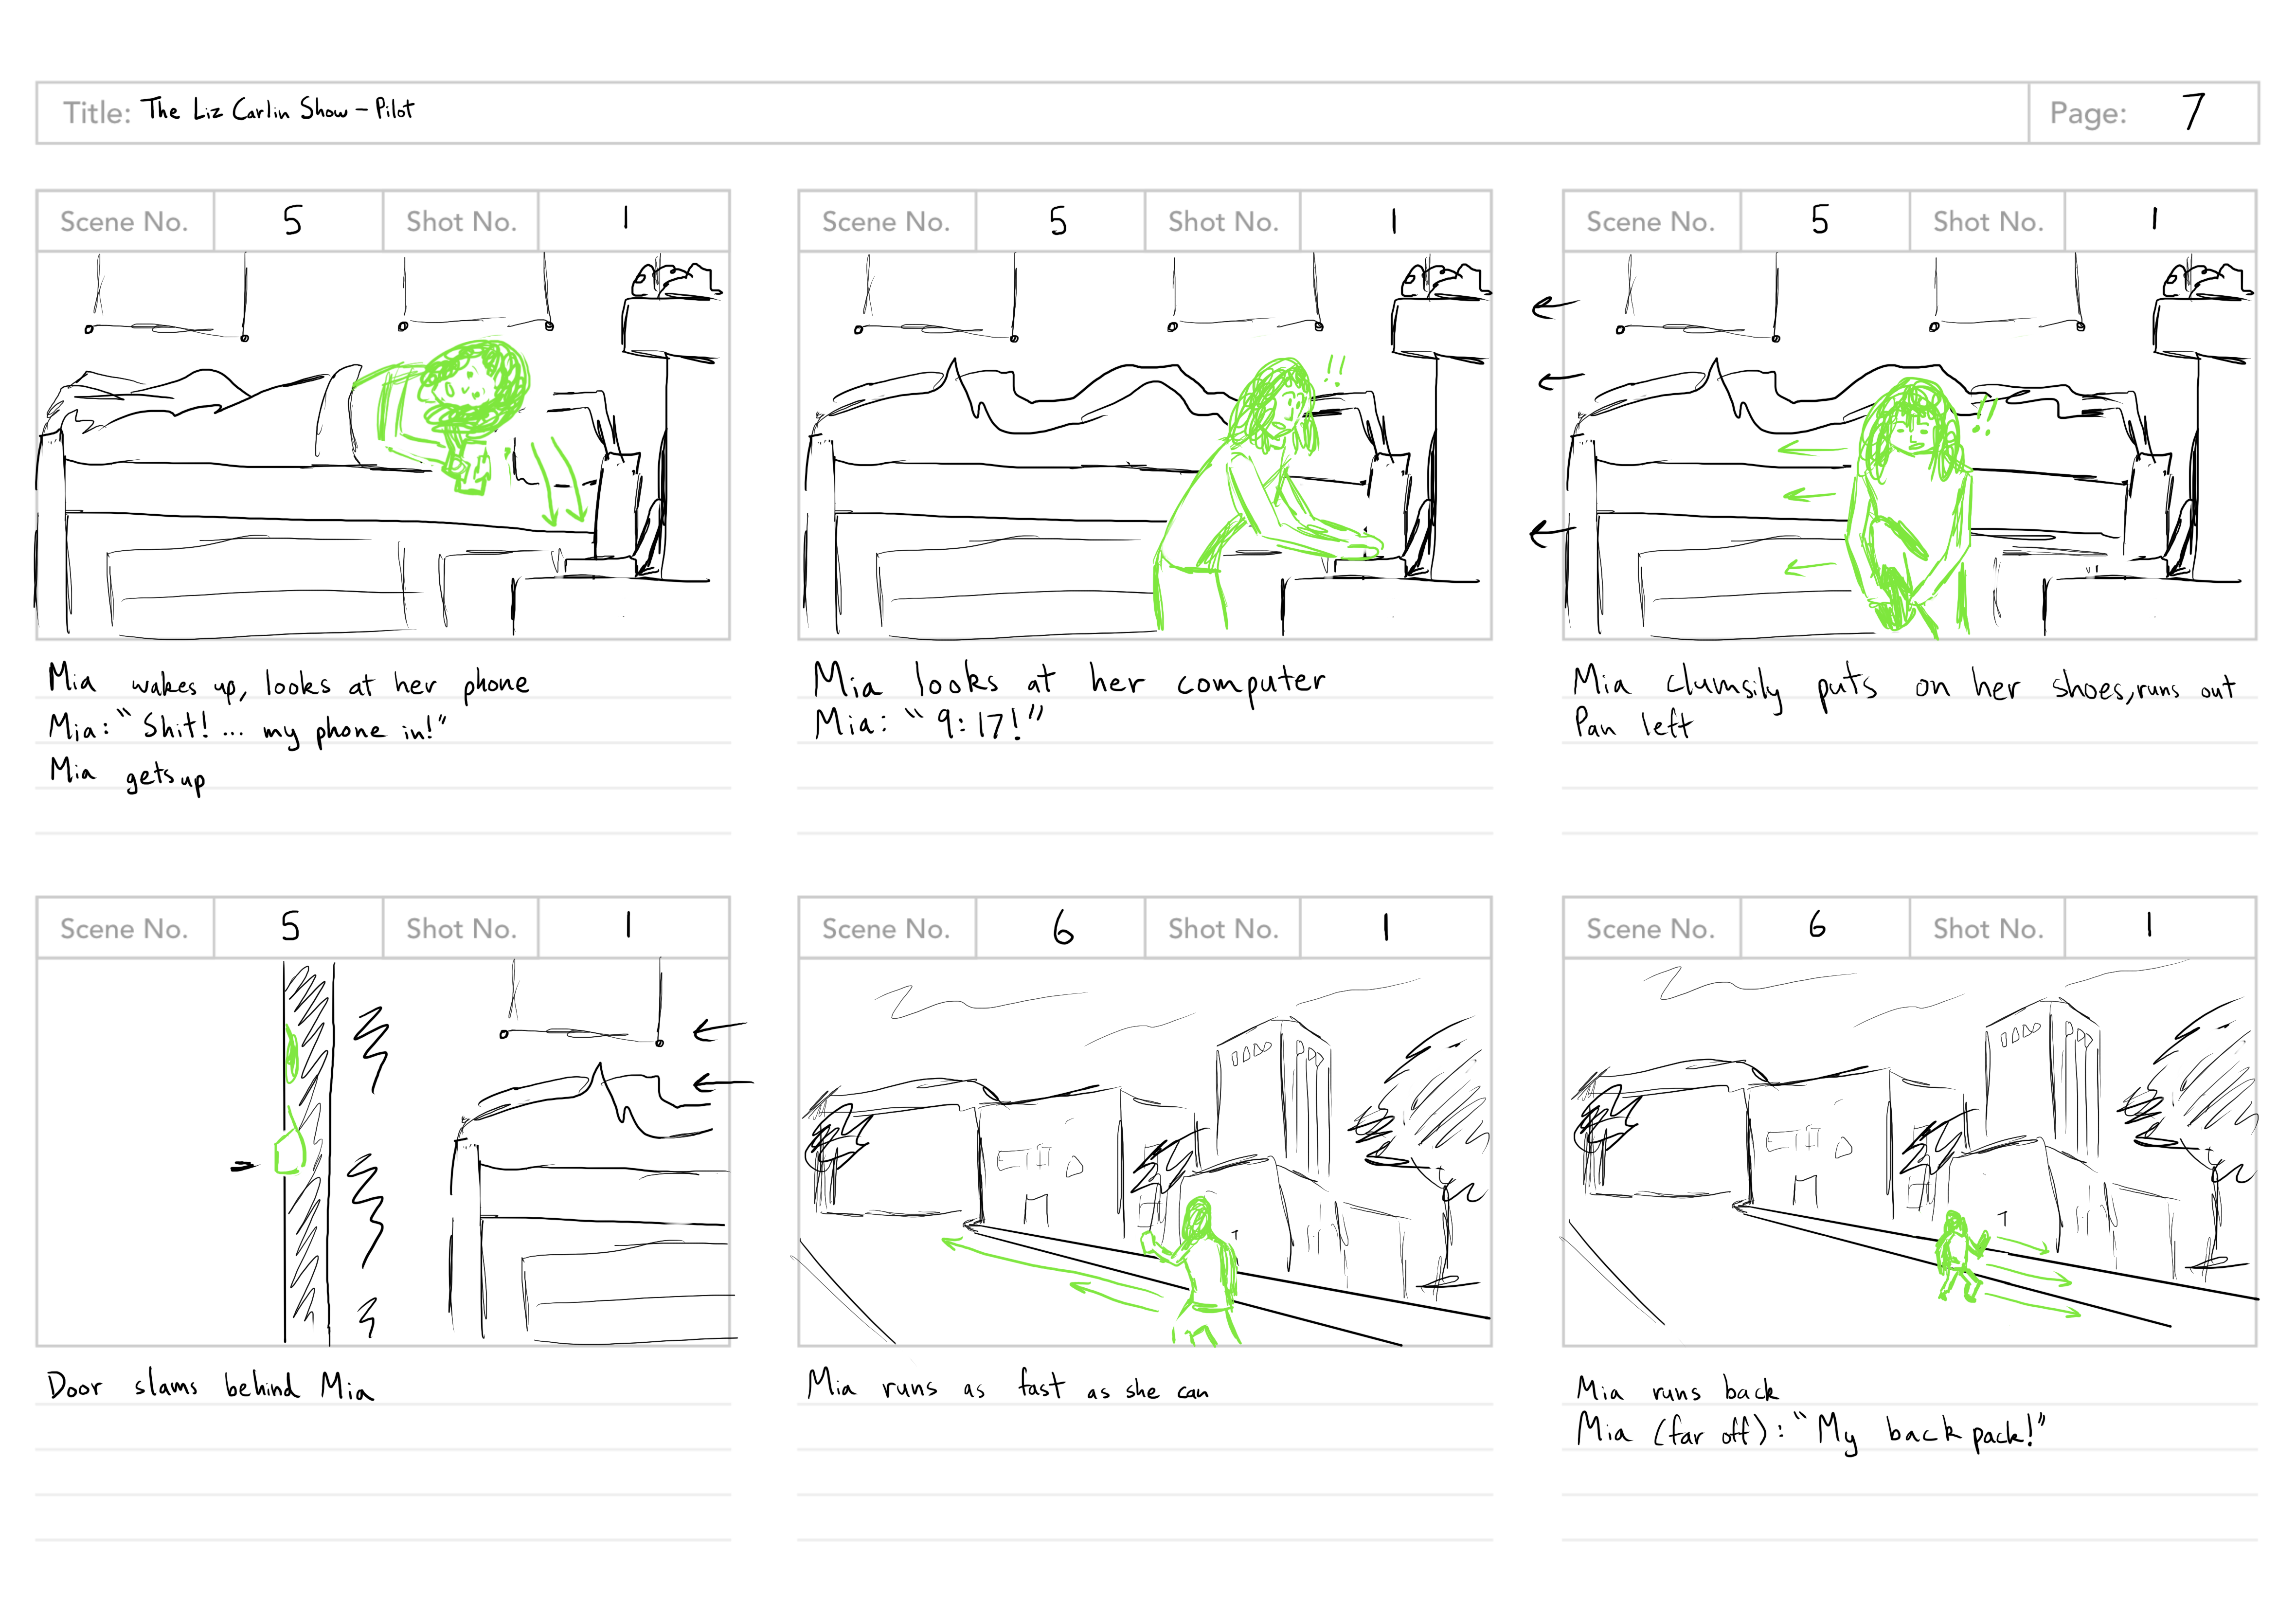 Title: The Liz Carlin Show – Pilot
Page: 7
Scene No. 5 Shot No. 1
Mia wakes up, looks at her phone
Mia: "Shit! ... my phone in!"
Mia gets up
Scene No. 5 Shot No. 1
!!
Mia looks at her computer
Mia: "9:17!"
Scene No. 5 Shot No. 1
!!
Mia clumsily puts on her shoes, runs out
Pan left
Scene No. 5 Shot No. 1
Door slams behind Mia
Scene No. 6 Shot No. 1
Mia runs as fast as she can
Scene No. 6 Shot No. 1
Mia runs back
Mia (far off): "My back pack!"